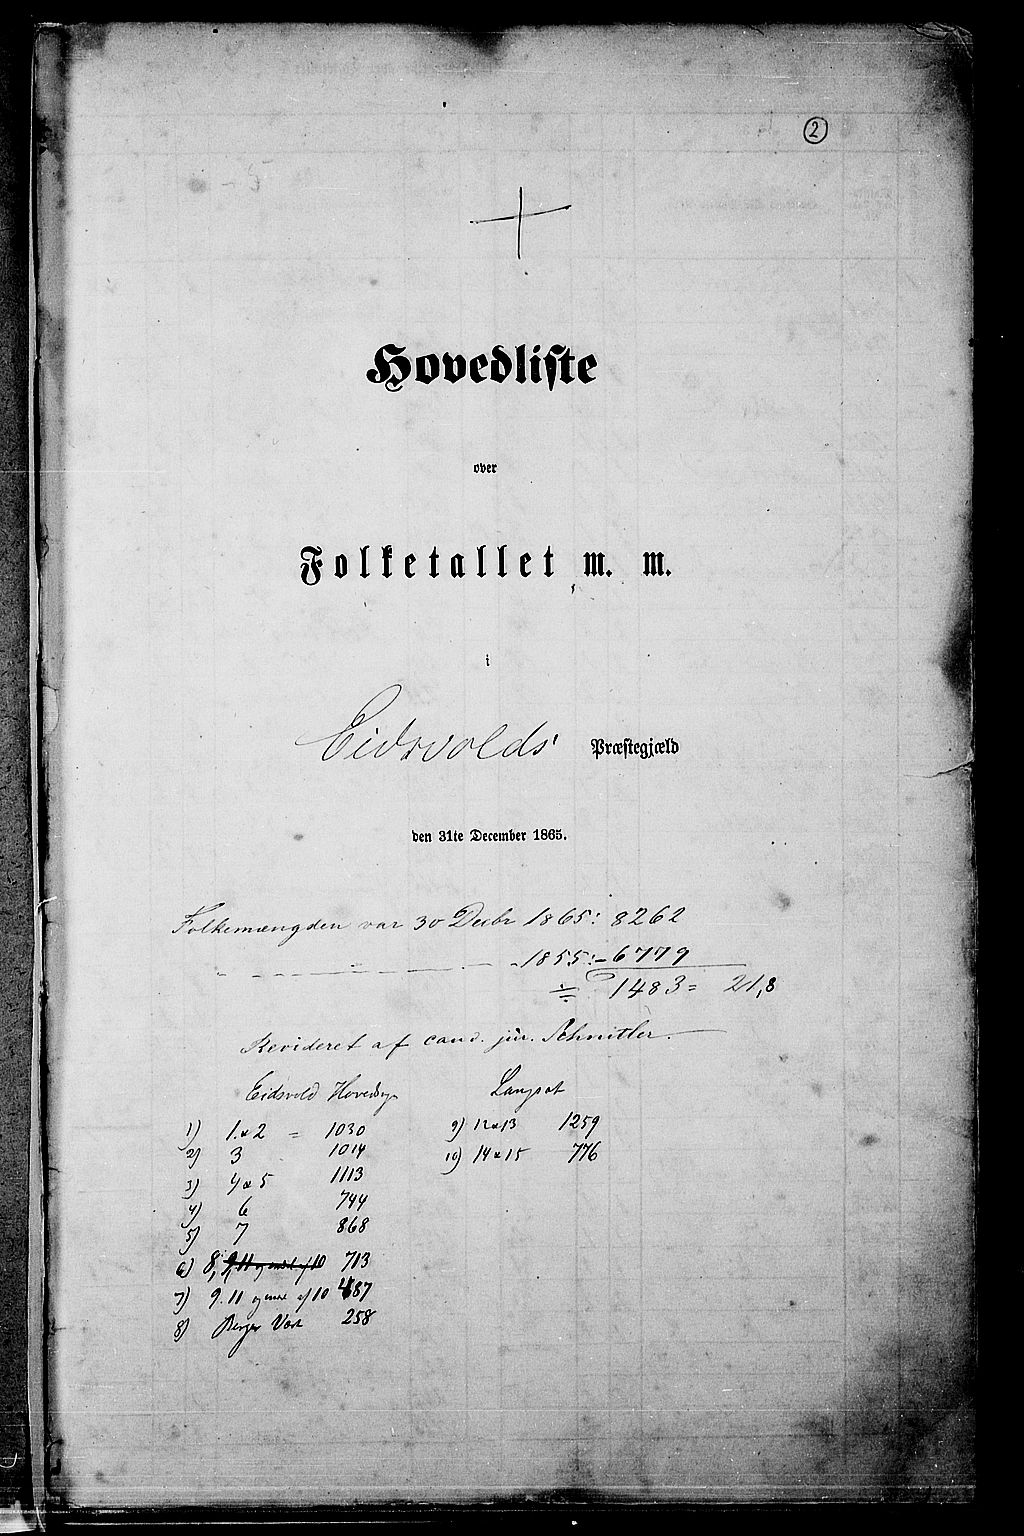 2
Hovedliste
over
Folketallet m. m.
i
Eidsvolds Præstegjæld
den 31te December 1865.
Folkemængden var 30 Decbr 1865: 8262
1855: 6779
1483 = 21,8
Revideret af cand. jur. Schnitler.
Eidsvold Hovedsogn
1) 1 & 2 = 1030
2) 3 1014
3) 4 & 5 1113
4) 6 744
5) 7 868
6) 8, 713
7) 9. 11 og af 10 487
8) Berger Værk 258
Langset
9) 12 & 13 1259
10) 14 & 15 776